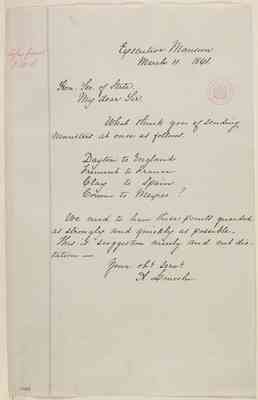 Executive Mansion
March 11. 1861.
Hon. Sec. of State.
My dear Sir:
What think you of sending
ministers at once as follows.
Dayton to England
Fremont to France
Clay to Spain
Corwin to Mexico?
We need to have these points guarded
as strongly and quickly as possible.
This is suggestion merely and not dic-
tation —
Your obt. Servt.
A. Lincoln